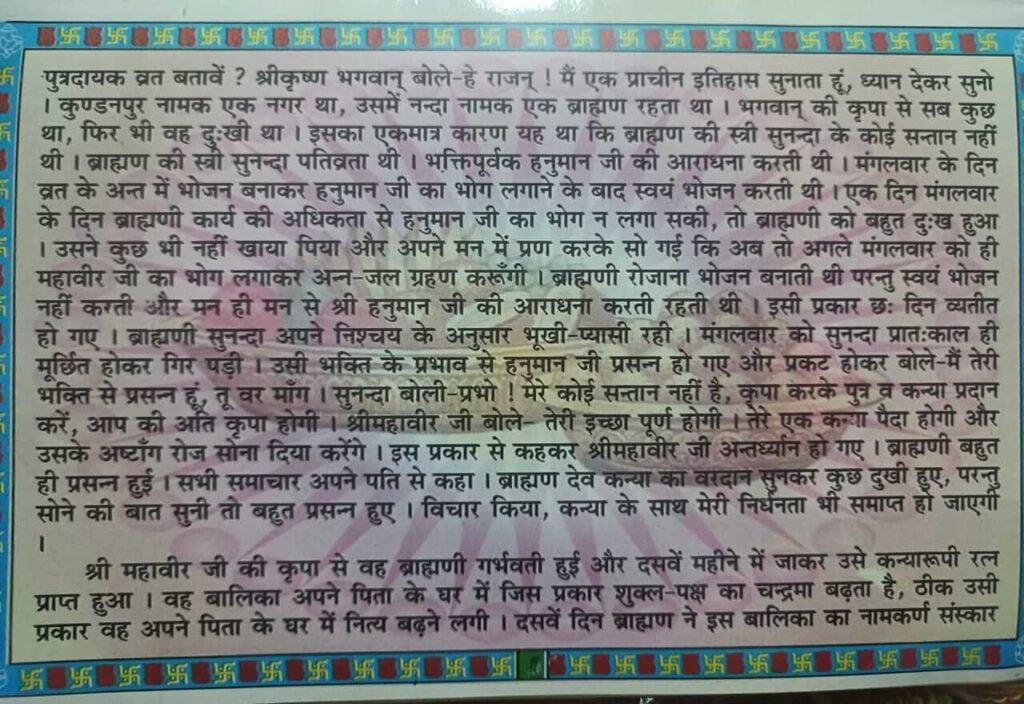 पुत्रदायक व्रत बतावें ? श्रीकृष्ण भगवान् बोले-हे राजन् ! मैं एक प्राचीन इतिहास सुनाता हूं, ध्यान देकर सुनो
। कुण्डनपुर नामक एक नगर था, उसमें नन्दा नामक एक ब्राह्मण रहता था । भगवान् की कृपा से सब कुछ
था, फिर भी वह दुःखी था । इसका एकमात्र कारण यह था कि ब्राह्मण की स्त्री सुनन्दा के कोई सन्तान नहीं
थी । ब्राह्मण की स्त्री सुनन्दा पतिव्रता थी । भक्तिपूर्वक हनुमान जी की आराधना करती थी । मंगलवार के दिन
व्रत के अन्त में भोजन बनाकर हनुमान जी का भोग लगाने के बाद स्वयं भोजन करती थी । एक दिन मंगलवार
के दिन ब्राह्मणी कार्य की अधिकता से हनुमान जी का भोग न लगा सकी, तो ब्राह्मणी को बहुत दुःख हुआ
। उसने कुछ भी नहीं खाया पिया और अपने मन में प्रण करके सो गई कि अब तो अगले मंगलवार को ही
महावीर जी का भोग लगाकर अन्न-जल ग्रहण करूँगी । ब्राह्मणी रोजाना भोजन बनाती थी परन्तु स्वयं भोजन
नहीं करती और मन ही मन से श्री हनुमान जी की आराधना करती रहती थी । इसी प्रकार छः दिन व्यतीत
हो गए । ब्राह्मणी सुनन्दा अपने निश्चय के अनुसार भूखी-प्यासी रही । मंगलवार को सुनन्दा प्रातःकाल ही
मूर्छित होकर गिर पड़ी । उसी भक्ति के प्रभाव से हनुमान जी प्रसन्न हो गए और प्रकट होकर बोले-मैं तेरी
भक्ति से प्रसन्न हूं, तू वर माँग । सुनन्दा बोली-प्रभो ! मेरे कोई सन्तान नहीं है, कृपा करके पुत्र व कन्या प्रदान
करें, आप की अति कृपा होगी । श्रीमहावीर जी बोले- तेरी इच्छा पूर्ण होगी । तेरे एक कन्या पैदा होगी और
उसके अष्टाँग रोज सोना दिया करेंगे । इस प्रकार से कहकर श्रीमहावीर जी अन्तर्ध्यान हो गए । ब्राह्मणी बहुत
ही प्रसन्न हुई । सभी समाचार अपने पति से कहा । ब्राह्मण देव कन्या का वरदान सुनकर कुछ दुखी हुए, परन्तु
सोने की बात सुनी तो बहुत प्रसन्न हुए । विचार किया, कन्या के साथ मेरी निर्धनता भी समाप्त हो जाएगी
।
श्री महावीर जी की कृपा से वह ब्राह्मणी गर्भवती हुई और दसवें महीने में जाकर उसे कन्यारूपी रत्न
प्राप्त हुआ । वह बालिका अपने पिता के घर में जिस प्रकार शुक्ल-पक्ष का चन्द्रमा बढ़ता है, ठीक उसी
प्रकार वह अपने पिता के घर में नित्य बढ़ने लगी । दसवें दिन ब्राह्मण ने इस बालिका का नामकर्ण संस्कार